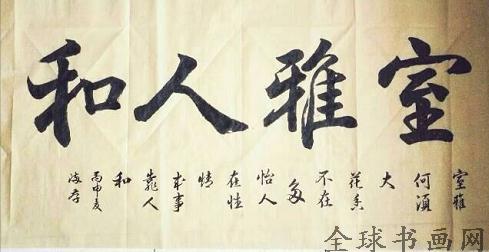 室雅人和
室雅
何須
大
花香
不在
多
怡人
在性
情
成事
靠人
和
丙申夏
全球书画网